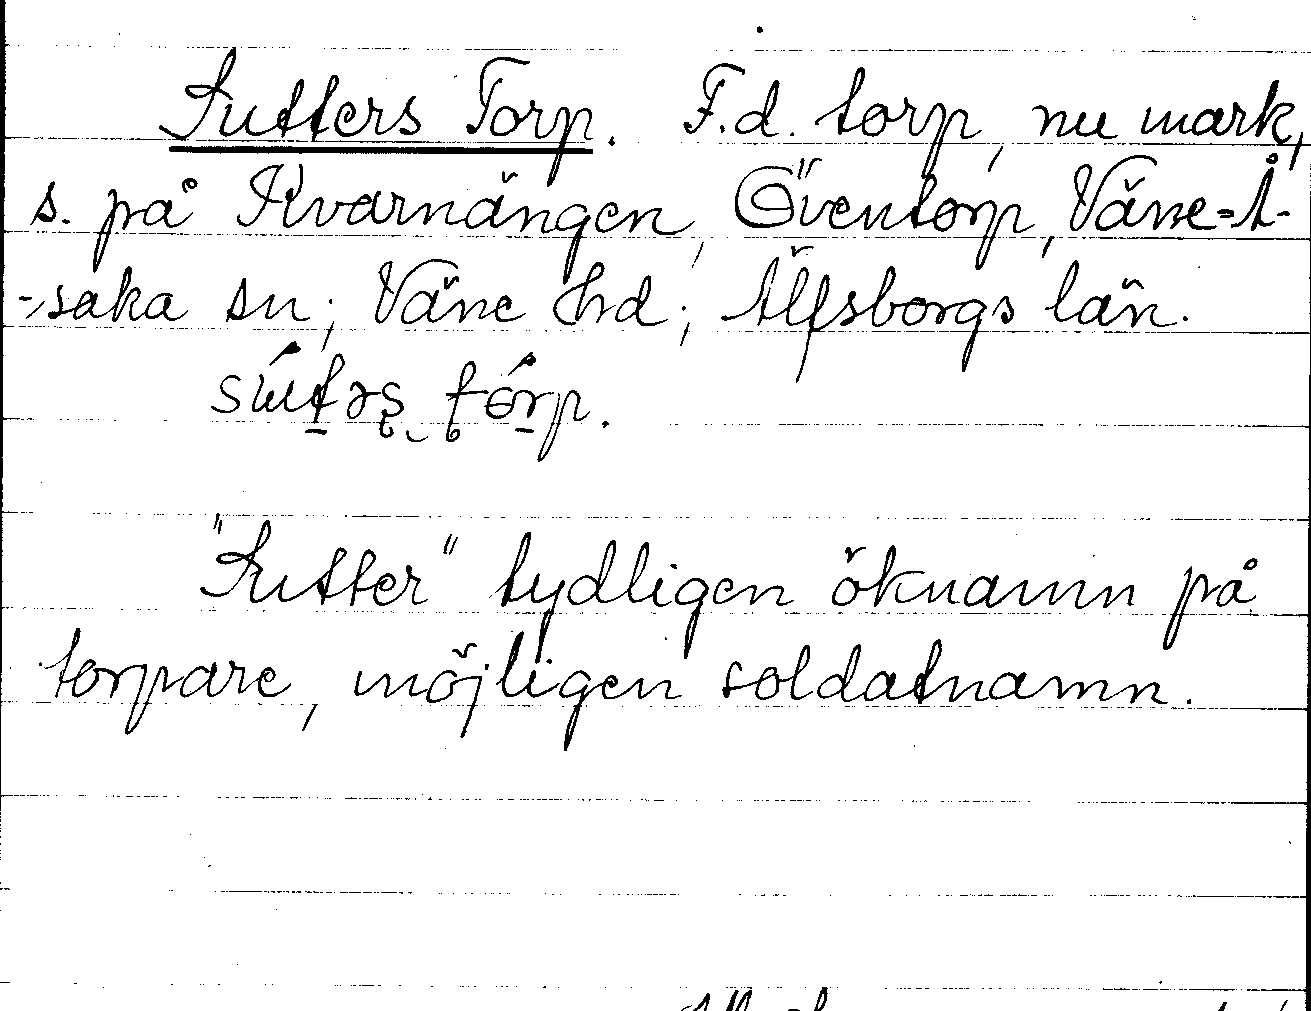 Sutters Torp. F.d. torp, nu mark,
s. på Kvarnängen, Öventorp, Väne-Å-
-saka sn; Väne hd; Älfsborgs län.
"Sutter" tydligen öknamn på
torpare, möjligen soldatnamn.